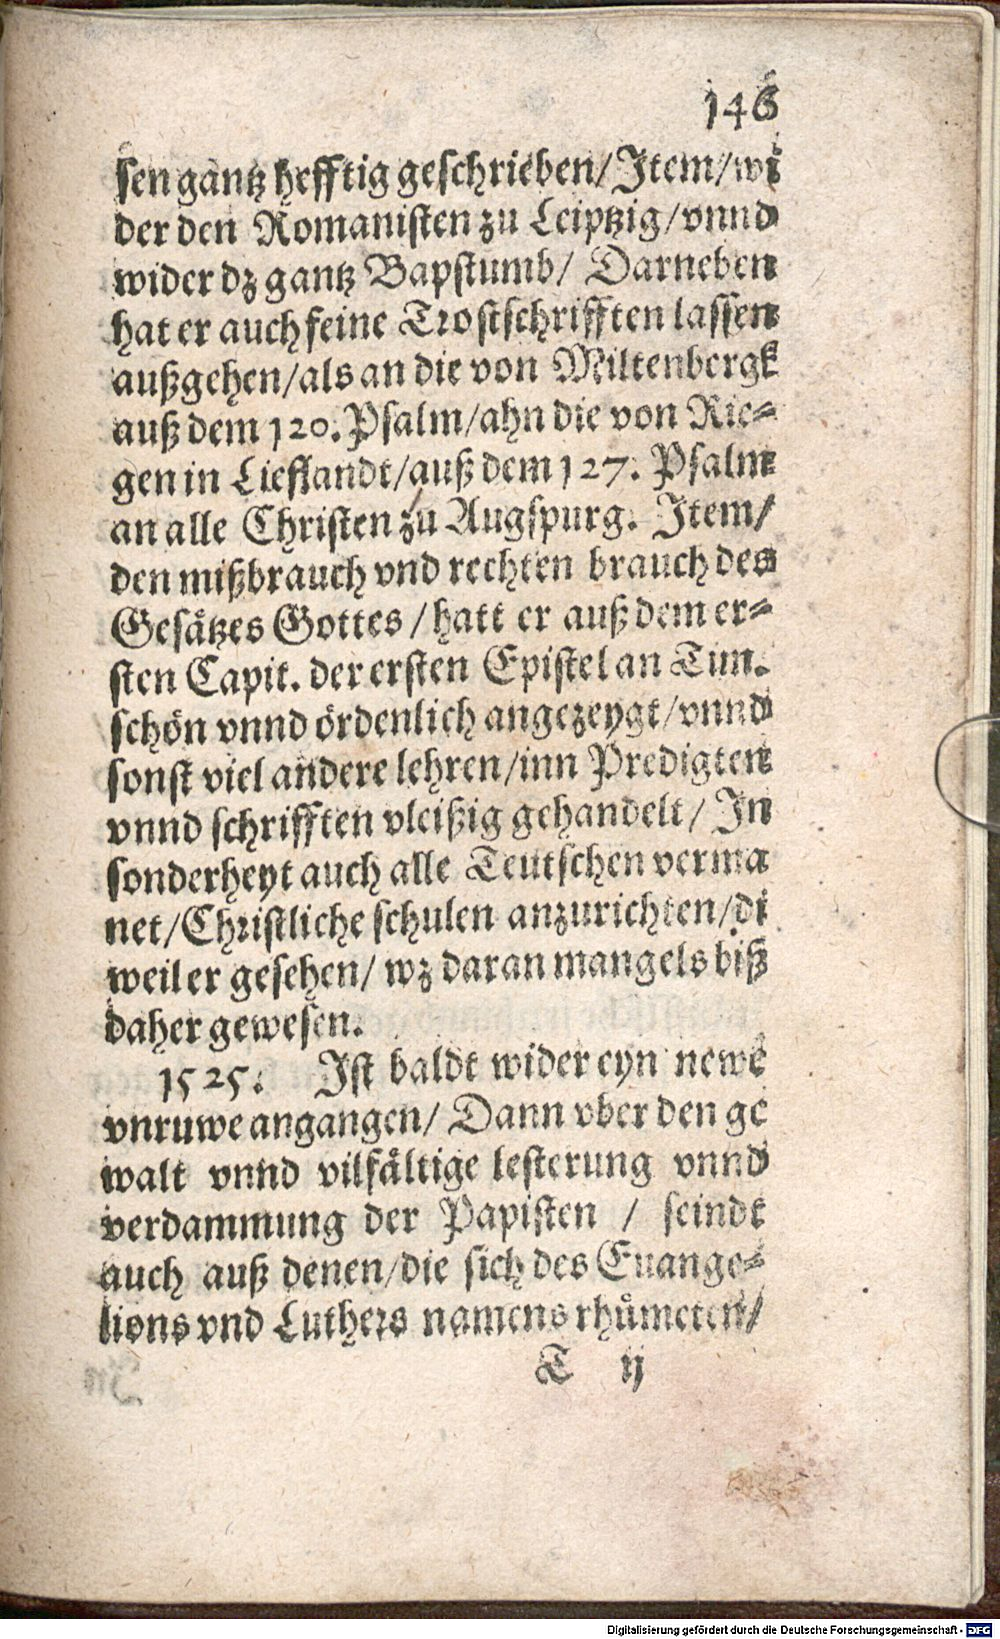 146
sen gantz hefftig geschrieben/ Jtem/ wi
der den Romanisten zu Leiptzig/ vnnd
wider dz gantz Bapstumb/ Darneben
hat er auch feine Trostschrifften lassen
außgehen/ als an die von Miltenbergk
auß dem 120. Psalm/ ahn die von Rie-
gen in Lieflandt/ auß dem 127. Psalm
an alle Christen zu Augspurg. Jtem/
den mißbrauch vnd rechten brauch des
Gesåtzes Gottes / hatt er auß dem er-
sten Capit. der ersten Epistel an Tim.
schön vnnd ördenlich angezeygt/ vnnd
sonst viel andere lehren/ inn Predigten
vnnd schrifften vleißig gehandelt/ Jn
sonderheyt auch alle Teutschen verma
net/ Christliche schulen anzurichten/ di
weil er gesehen/ wz daran mangels biß
daher gewesen.
1525. Jst baldt wider eyn newe
vnruwe angangen/ Dann vber den ge
walt vnnd vilfåltige lesterung vnnd
verdammung der Papisten / seindt
auch auß denen/ die sich des Euange-
lions vnd Luthers namens rhůmeten/
T ij
Digitalisierung gefördert durch die Deutsche Forschungsgemeinschaft - DFG